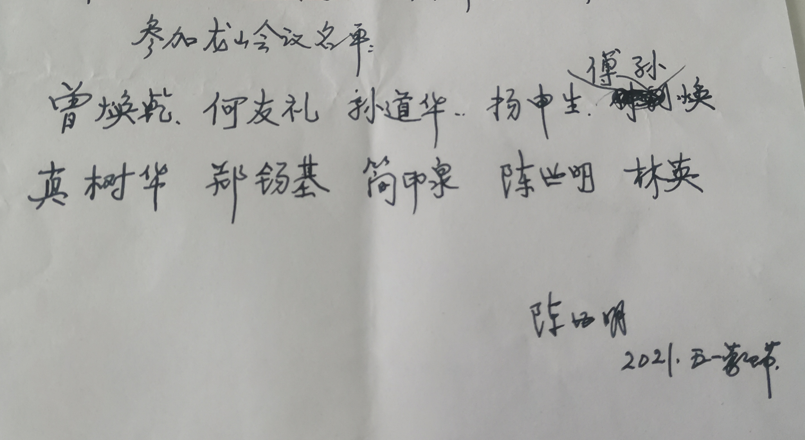 参加龙山会议名单:
曾焕乾、何友礼 孙道华.. 杨申生. 傅孙焕
真树华 郑锡基 简印泉 陈世明 林英
陈世明
2021.五一劳动节.